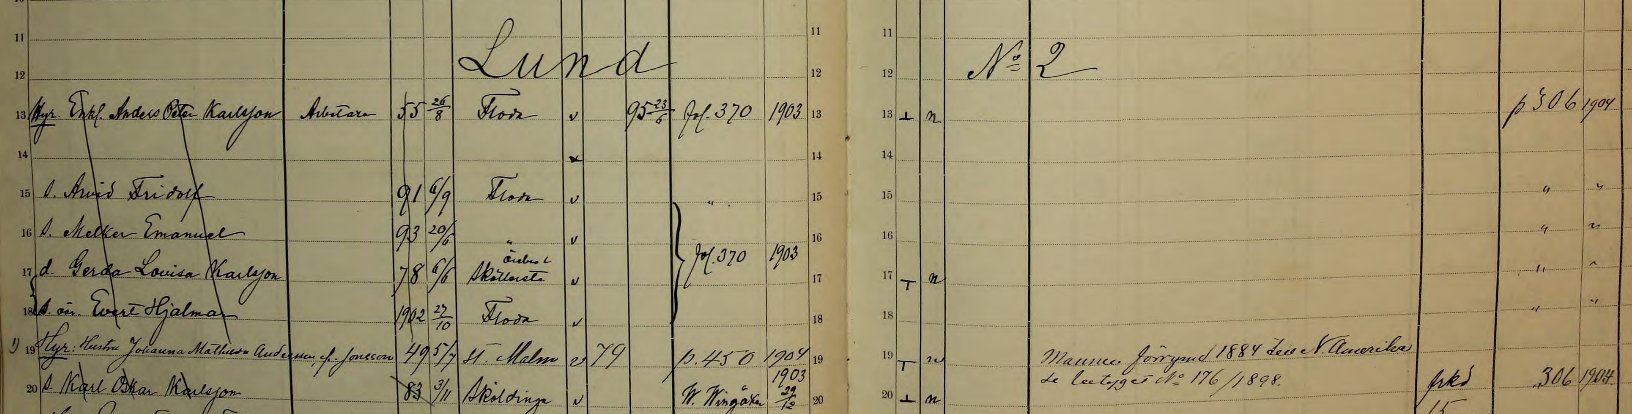 11 11 11
Lund No 2
12 12 12
13 Hyr. Enkl. Anders Peter Karlsson Arbetare 55 26/8 Floda v 95 23/6 fol. 370 1903 13 13 n p 306 1904
14 14 14
15 s. Arvid Fridolf 91 6/9 Floda v " 15 15 " "
16 s. Melker Emanuel 93 20/6 " v 16 16 " "
17 d. Gerda Lovisa Karlsson 78 6/6 Sköllersta v fol. 370 1903 17 17 n " "
18 s. Evert Hjalmar 1902 27/10 Floda v 18 18 " "
19 Hyr: Hustru Johanna Mathilda Andersson, f. Jonsson 49 5/7 St. Malm v 79 p. 450 1904 19 19 Mannen förrymd 1884 till N Amerika
20 s. Karl Oskar Karlsson 83 3/11 Sköldinge v W. Wingåker 1903 29/12 20 20 n se betyget No 176/1898. 306 1904
15